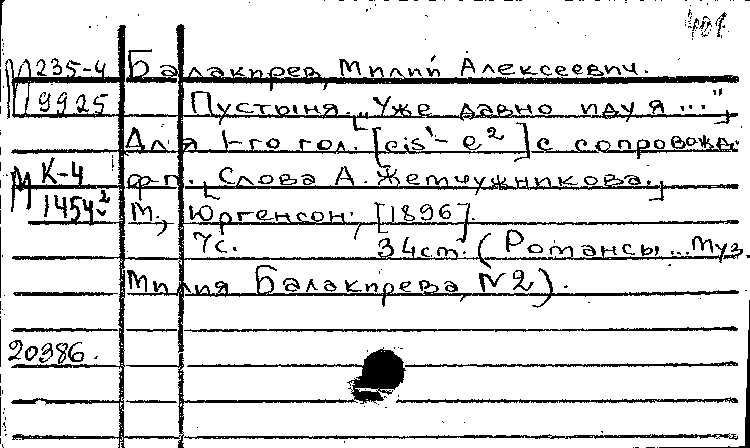 401
М 235-4 Балакирев, Милий Алексеевич.
9925 Пустыня. ["Уже давно иду я..."]
Для 1-го гол. [cis¹ - e²] с сопровожд.
М К-4 ф-п. [Слова А. Жемчужникова.]
1454² М., Юргенсон, [1896].
7с. 34см. (Романсы... муз.
Милия Балакирева, N2).
20386.